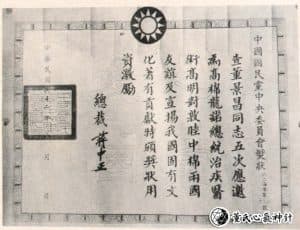 中國國民黨中央委員會獎狀
查董景昌同志五次應邀
為高棉龍諾總統治疾醫
術高明對敦睦中棉兩國
友誼及宣揚我國固有文
化著有貢獻特頒獎狀用
資激勵
總裁 蔣中正
中華民國 十二年 月 日
董氏 神針